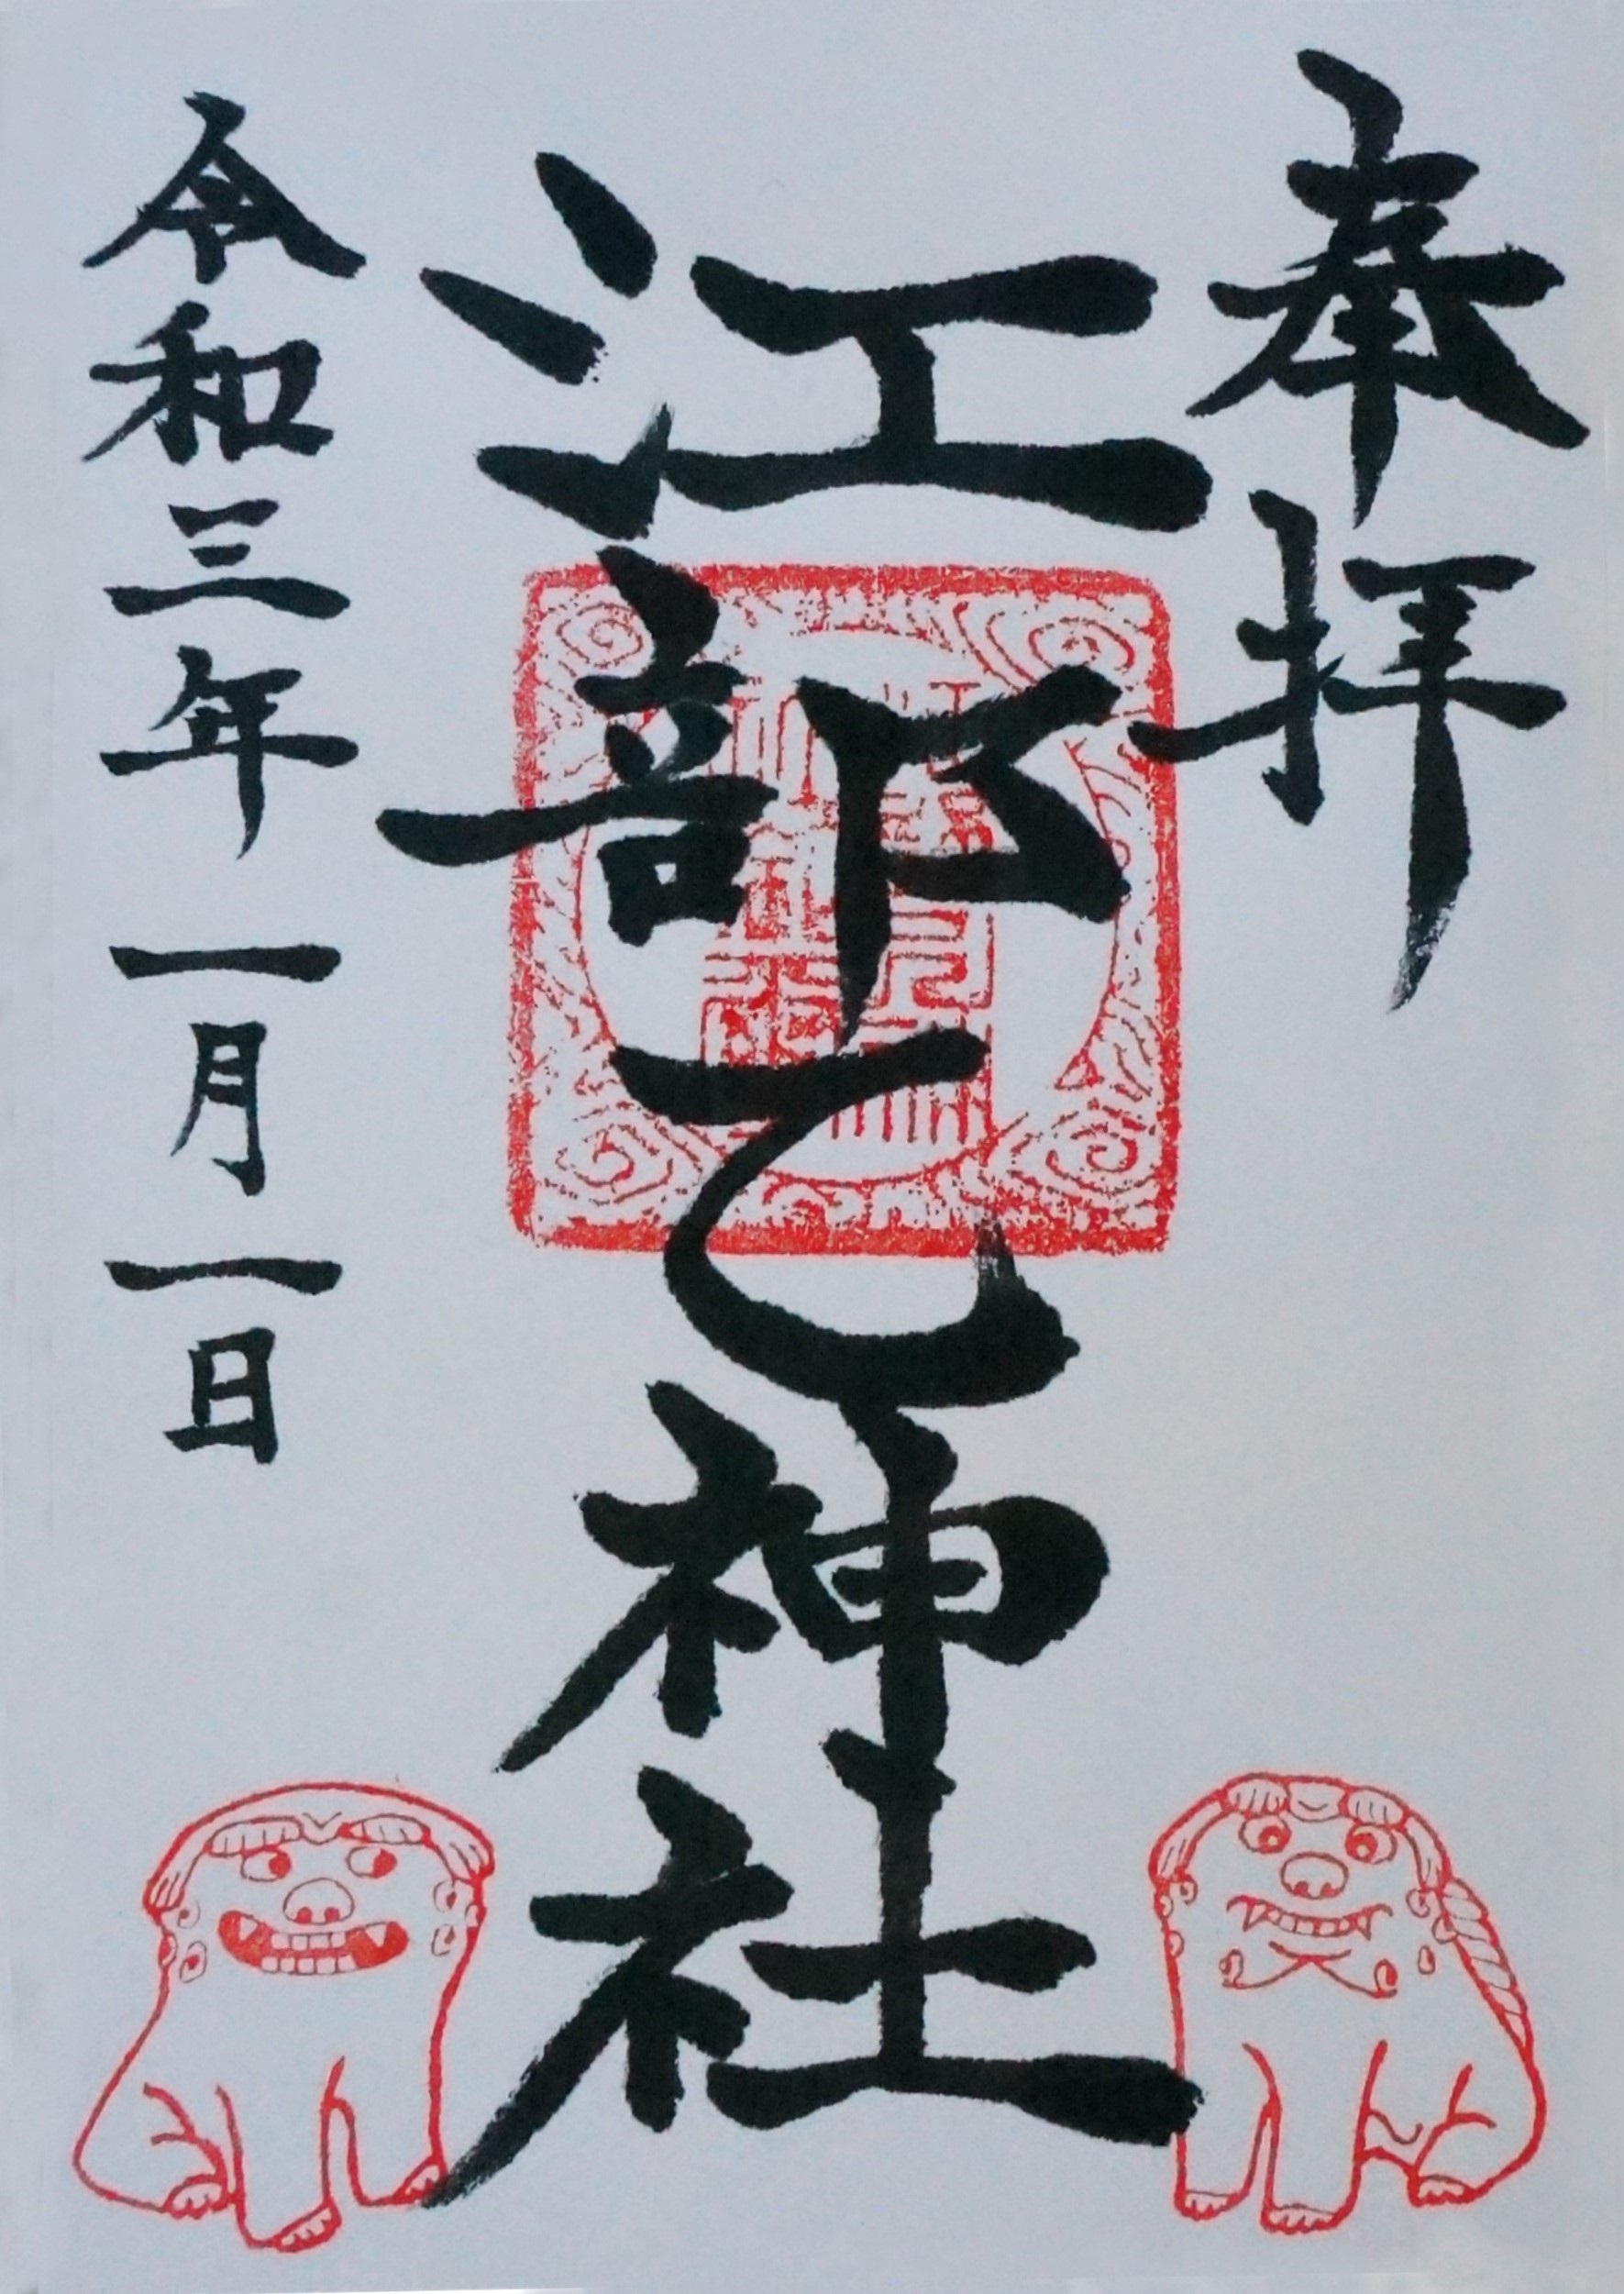 奉拝
江部乙神社
令和三年一月一日